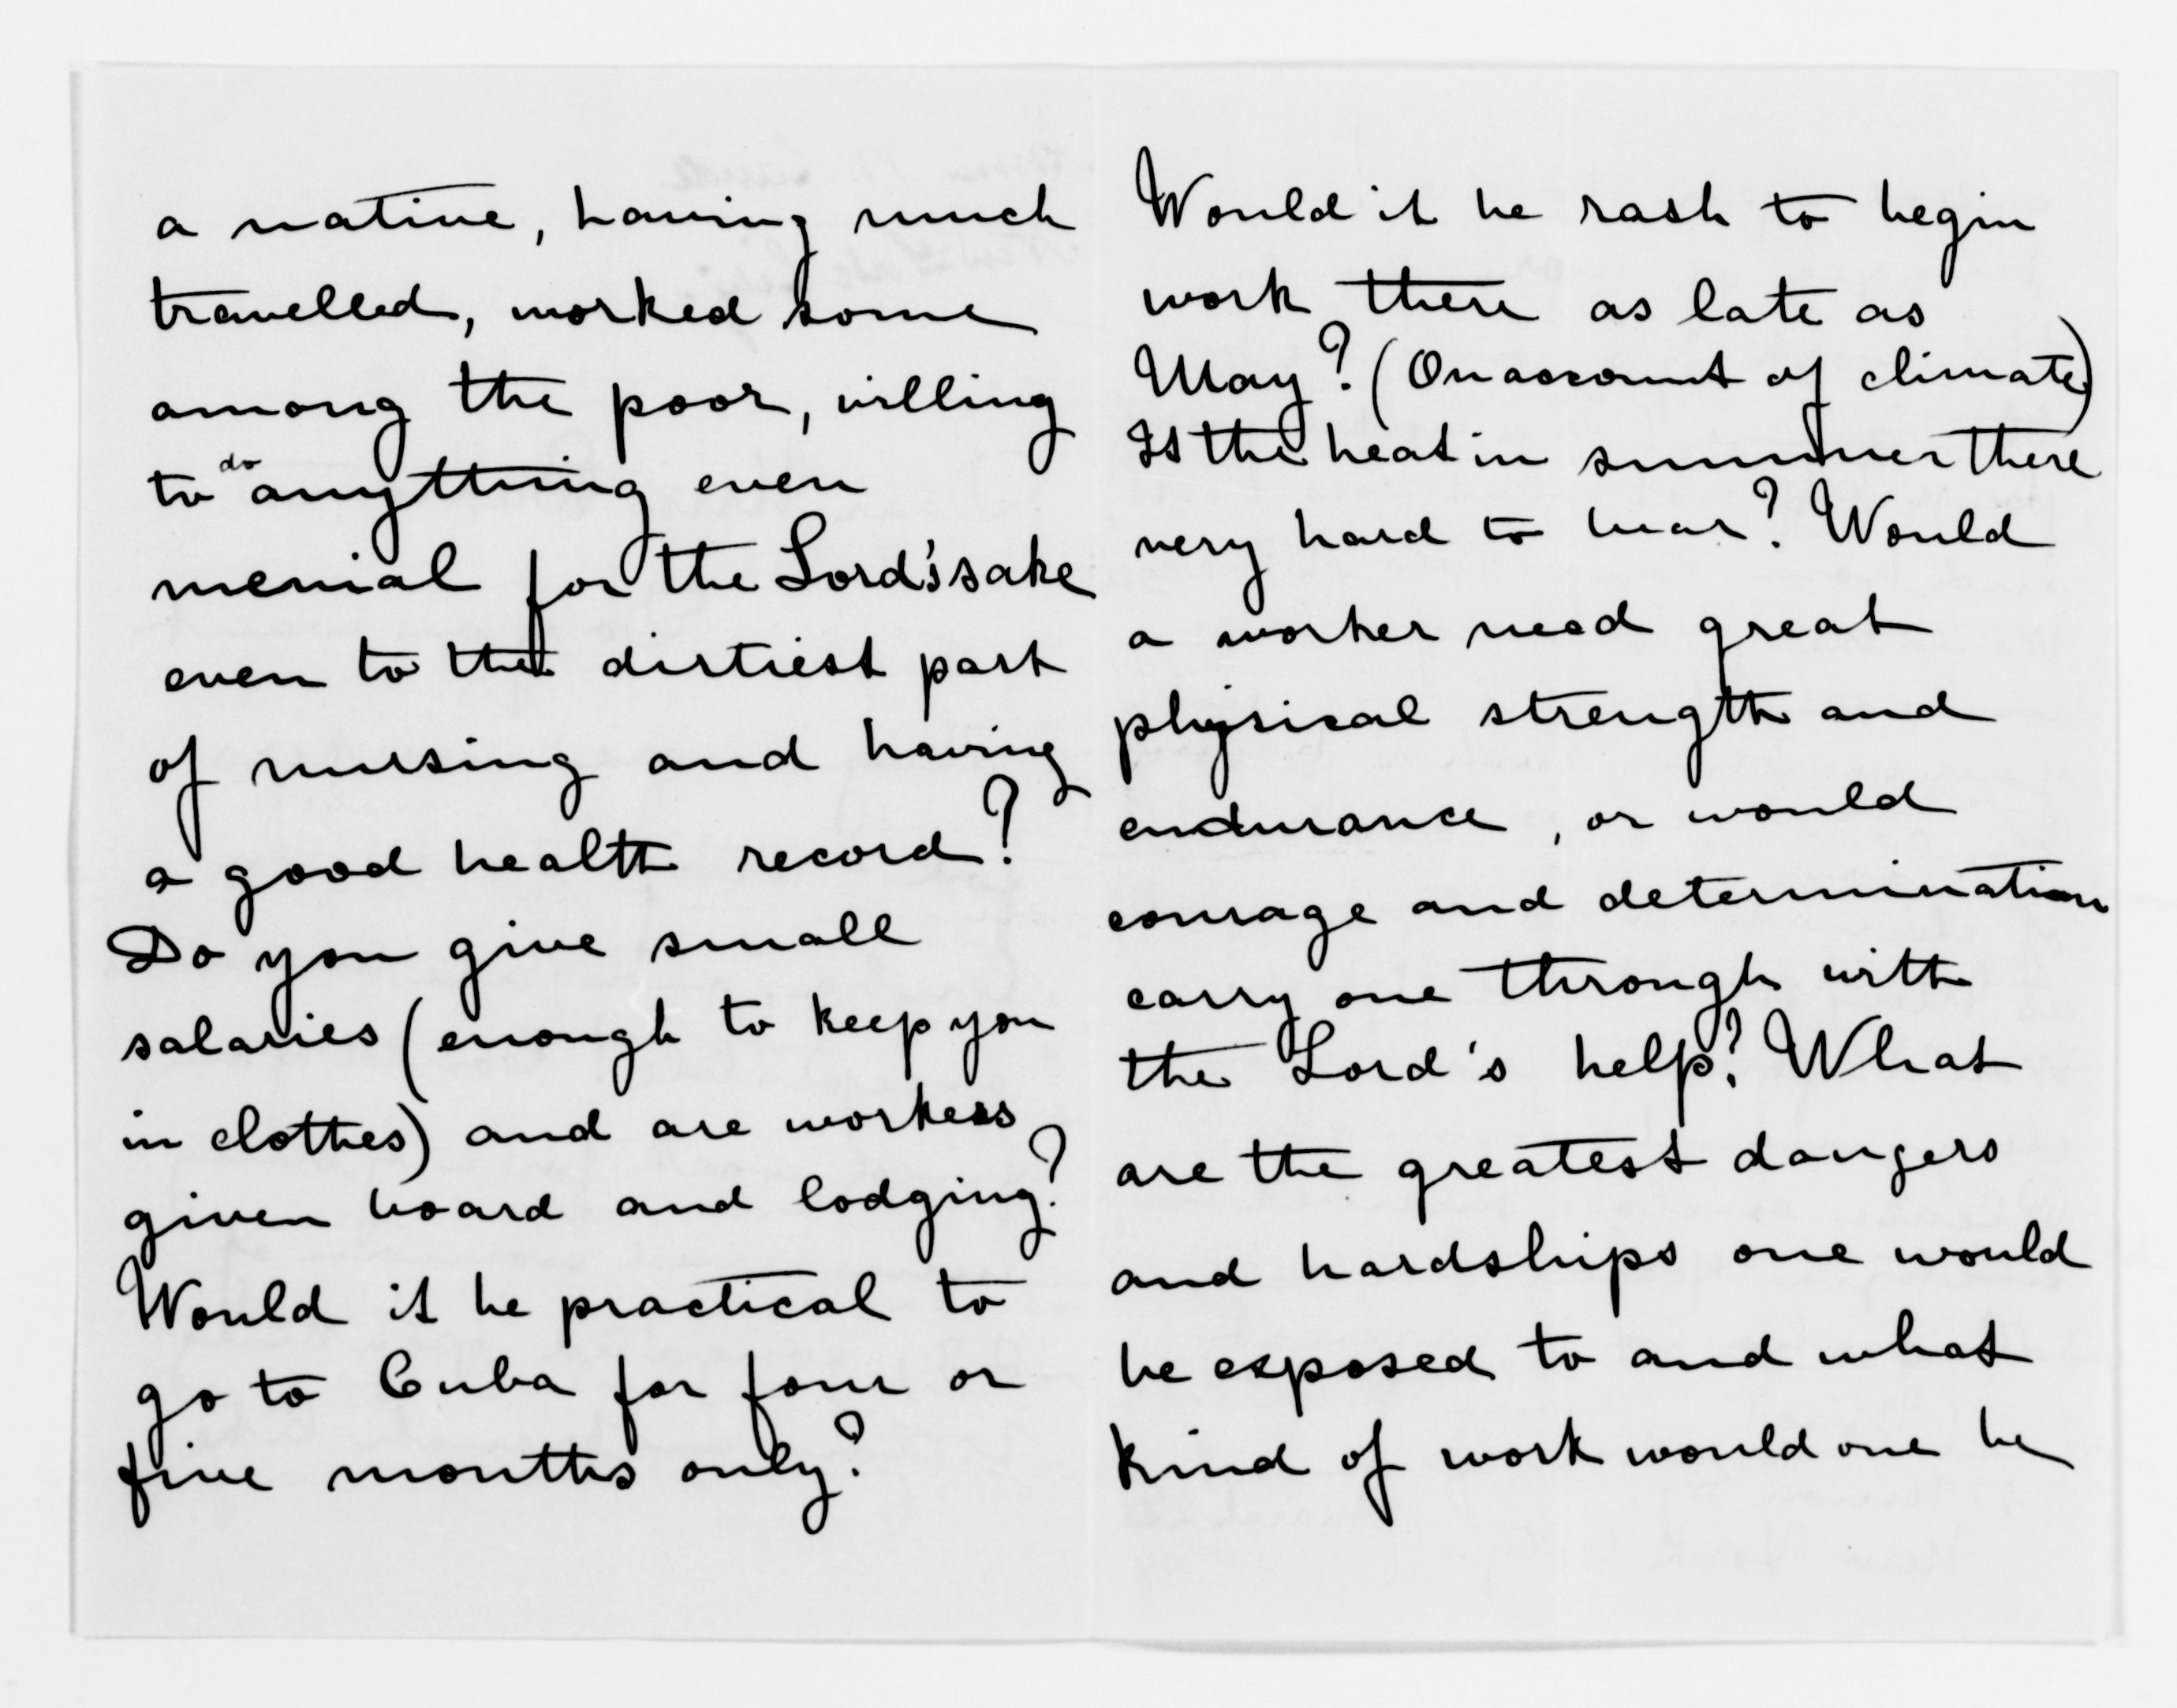 a native, having much
travelled, worked some
among the poor, willing
to do anything even
menial for the Lord's sake
even to the dirtiest part
of nursing and having
a good health record?
Do you give small
salaries (enough to keep you
in clothes) and are workers
given board and lodging?
Would it be practical to
go to Cuba for four or
five months only?
Would it be rash to begin
work there as late as
May? (On account of climate)
Is the heat in summer there
very hard to bear? Would
a worker need great
physical strength and
endurance, or would
courage and determination
carry one through with
the Lord's help? What
are the greatest dangers
and hardships one would
be exposed to and what
kind of work would one be